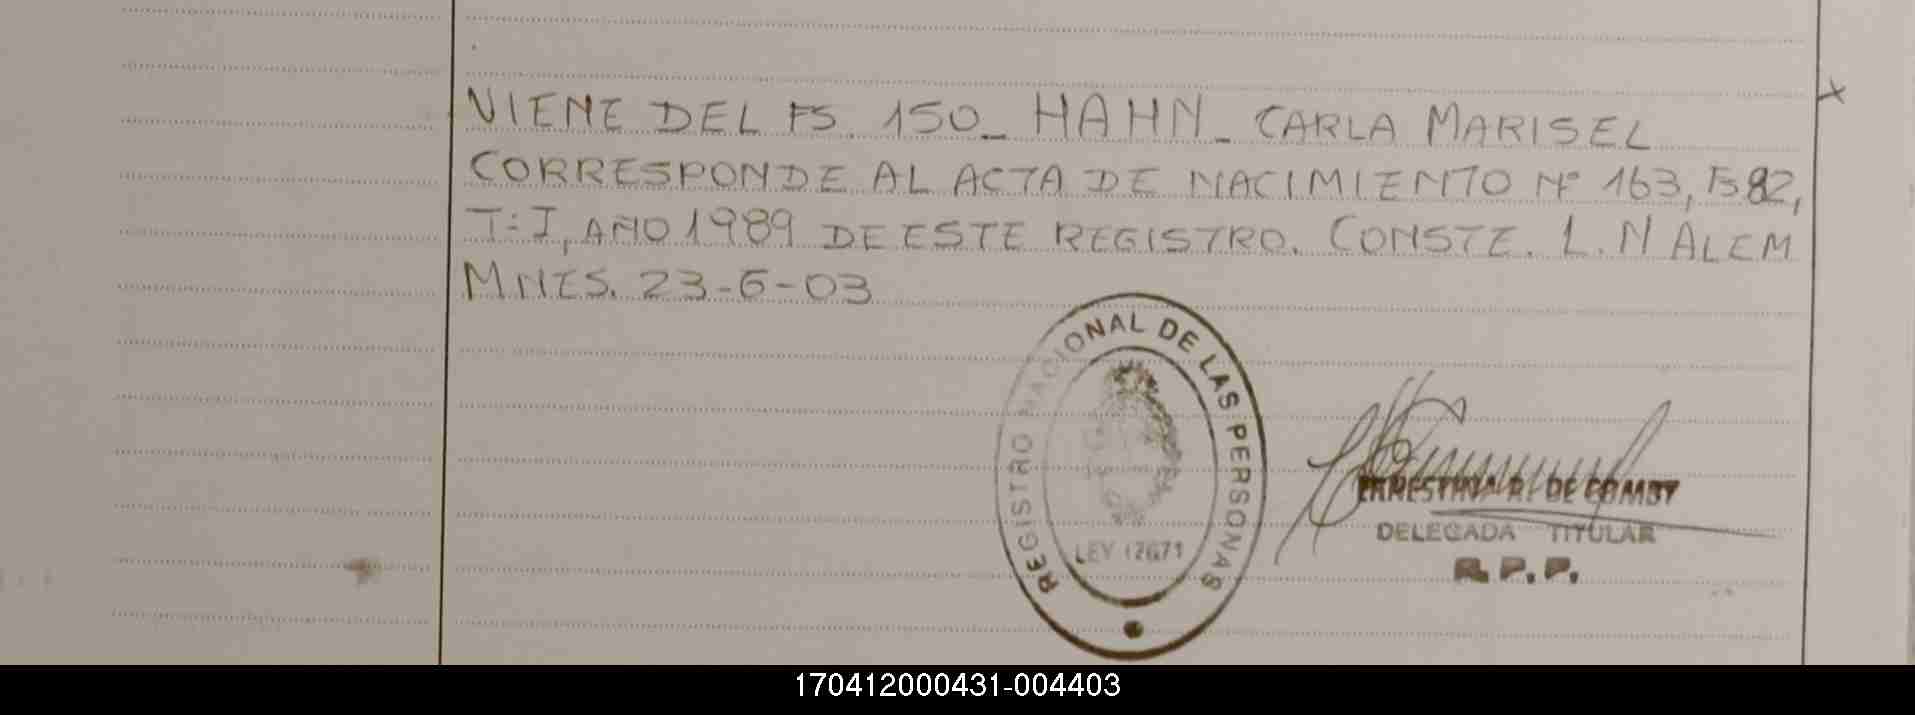 VIENE DEL FS. 150_ HAHN_ CARLA MARISEL
CORRESPONDE AL ACTA DE NACIMIENTO Nº 163, FS 82,
T: I, AÑO 1989 DE ESTE REGISTRO. CONSTE. L. N ALEM
MNES. 23-6-03
REGISTRO NACIONAL DE LAS PERSONAS
LEY 17671
ERNESTINA R. DE COMBY
DELEGADA TITULAR
R. P. P.
170412000431-004403